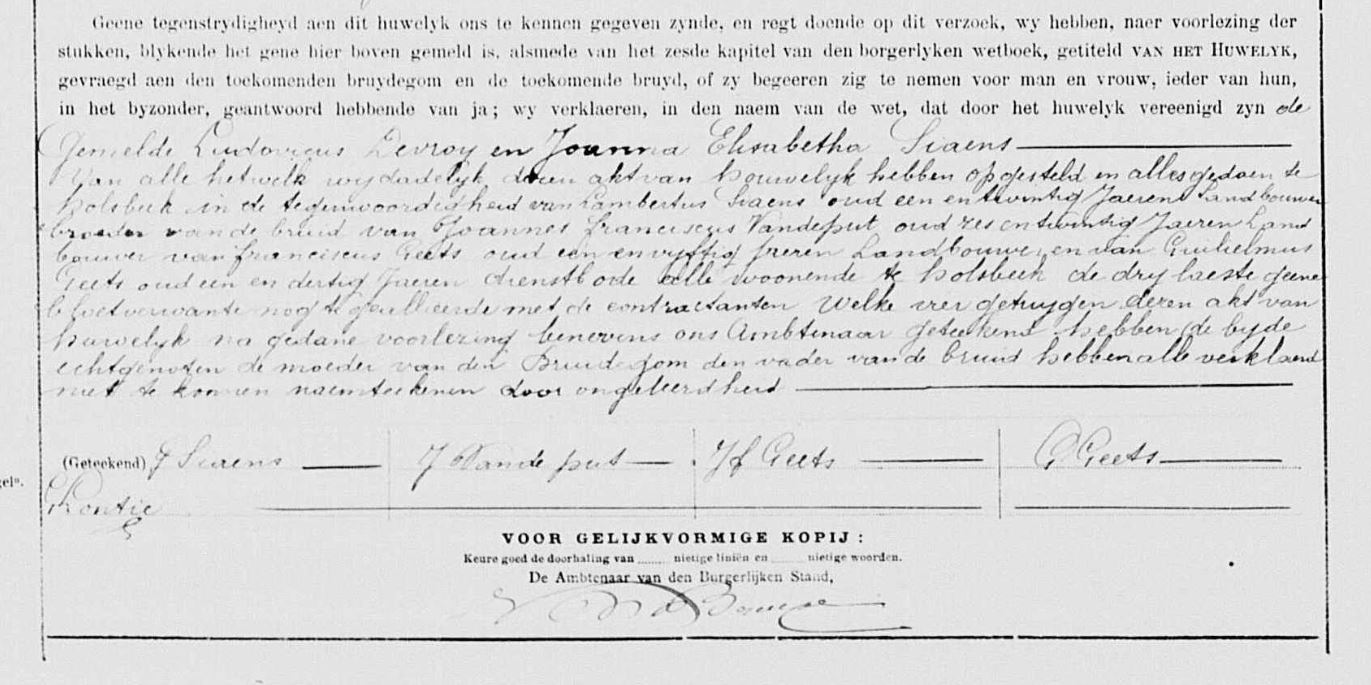 Geene tegenstrydigheyd aen dit huwelyk ons te kennen gegeven zynde, en regt doende op dit verzoek, wy hebben, naer voorlezing der
stukken, blykende het gene hier boven gemeld is, alsmede van het zesde kapitel van den borgerlyken wetboek, getiteld VAN HET HUWELYK,
gevraegd aen den toekomenden bruydegom en de toekomende bruyd, of zy begeeren zig te nemen voor man en vrouw, ieder van hun,
in het byzonder, geantwoord hebbende van ja; wy verklaeren, in den naem van de wet, dat door het huwelyk vereenigd zyn de
Gemelde Ludovicus Devroy en Joanna Elisabetha Siaens
Van alle hetwelk wy dadelyk dezen akt van houwelyk hebben opgesteld en alles gedaen te
Holsbeek in de tegenwoordigheid van Lambertus Siaens oud een en twintig Jaeren Landbouwer
broeder van de bruid van Joannes franciscus Vandeput oud zes en twintig Jaeren Land
bouwer van franciscus Geets oud een en vyftig jaeren Landbouwer en van Guilielmus
Geets oud een en dertig Jaeren dienstbode alle woonende te holsbeek de dry laeste geene
bloetverwante nog te geallieerde met de contractanten welke vier getuygen dezen akt van
huwelyk na gedane voorlezing benevens ons Ambtenaar geteekend hebben de byde
echtgenoten de moeder van den Bruidegom den vader van de bruid hebben alle verklaerd
niet te konnen naemteekenen door ongeleerdheid
(Geteekend) J Siaens J Vande put J f Geets G Geets
VOOR GELIJKVORMIGE KOPIJ :
Keure goed de doorhaling van ....... nietige liniën en ....... nietige woorden.
De Ambtenaar van den Burgerlijken Stand,